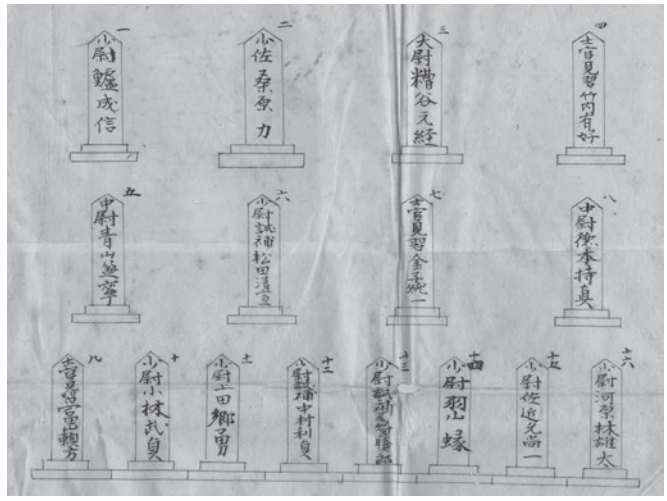 一
少尉鑪成信
二
少佐桑原力
三
大尉糟谷元経
四
士官見習竹内有好
五
中尉青山
六
少尉試補松田清宣
七
士官見習金子純一
八
中尉徳本持真
九
士官見習
十
少尉小林武貞
十一
少尉上田郷勇
十二
少尉試補中村利貞
十三
少尉試補
十四
少尉羽山蟻
十五
少尉佐近允尚一
十六
少尉河原林雄太